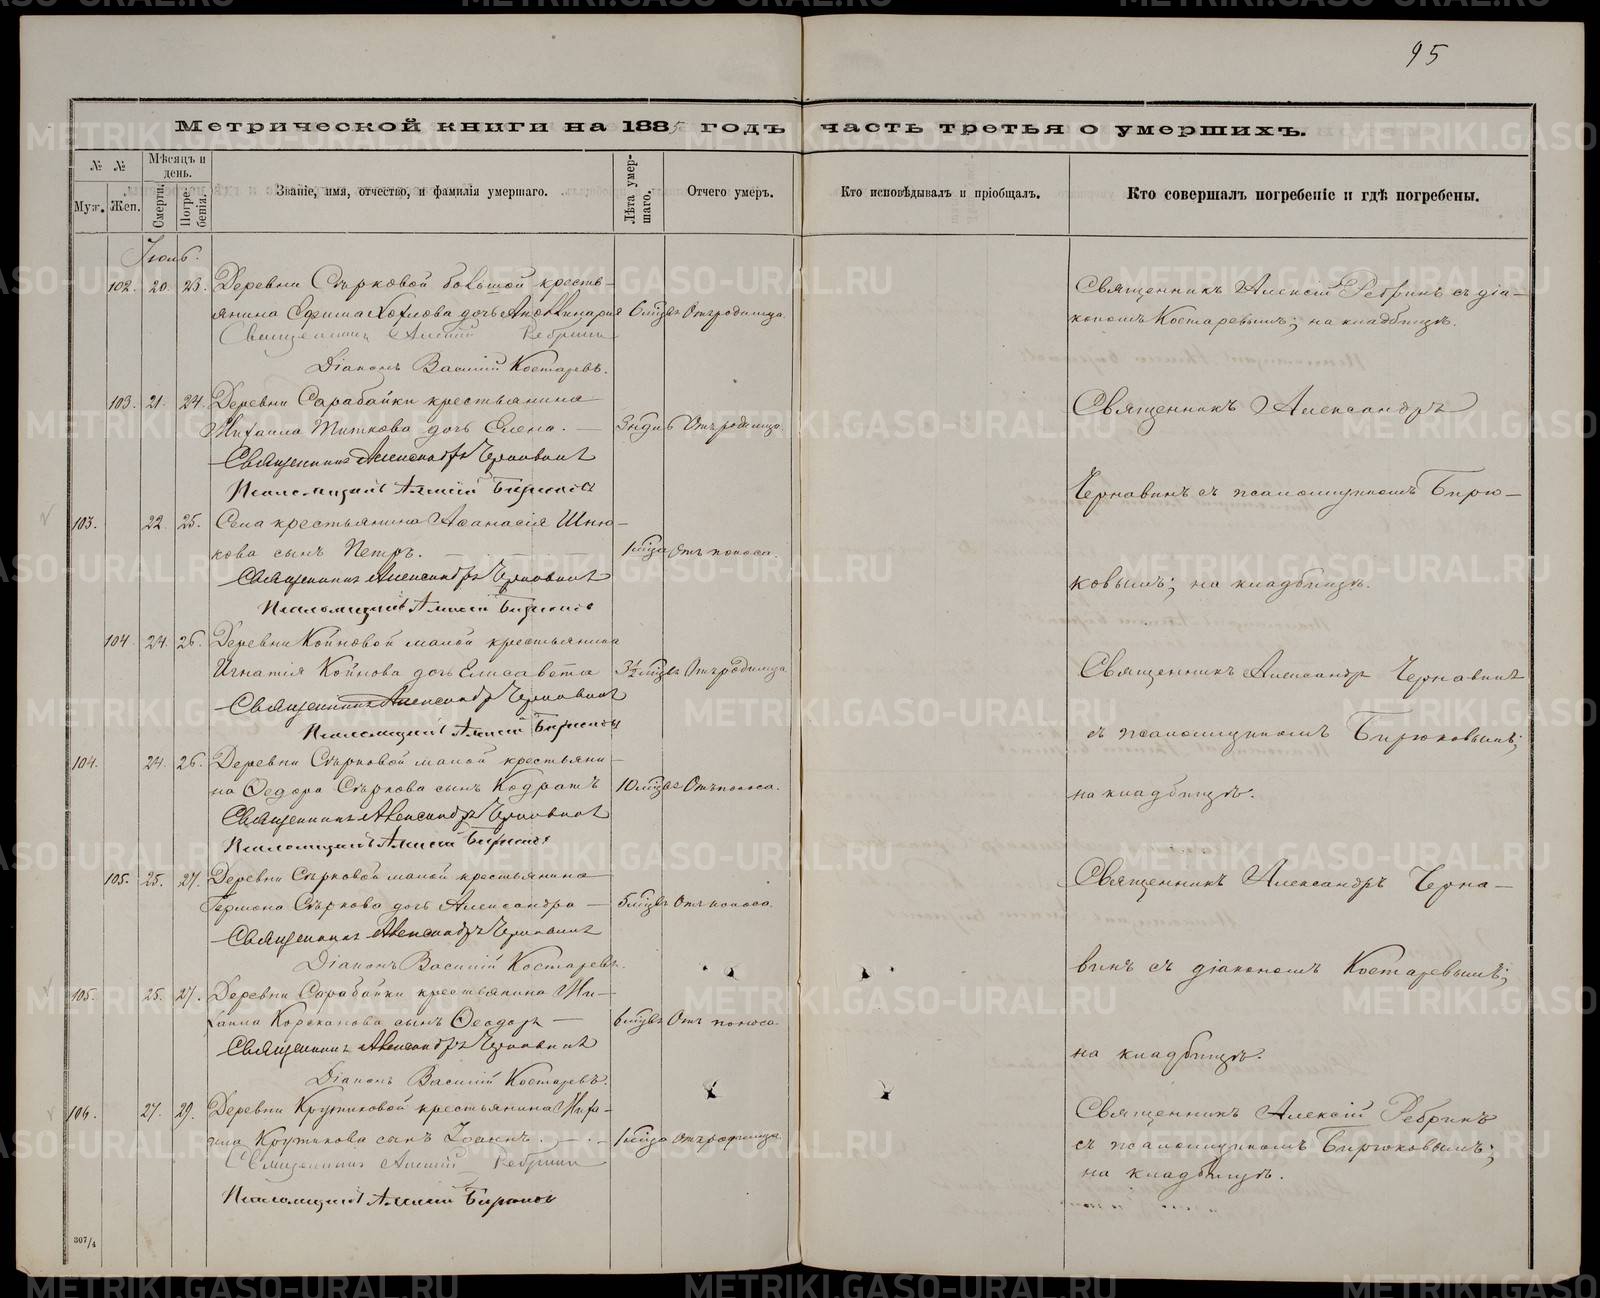 95
Метрической книги на 1885 годъ часть третья о умершихъ.
№ №
Мѣсяцъ и день.
Муж.
Жен.
Смерти.
Погребенія.
Званіе, имя, отчество, и фамилія умершаго.
Лѣта умершаго.
Отчего умеръ.
Кто исповѣдывалъ и пріобщалъ.
Кто совершалъ погребеніе и гдѣ погребены.
Іюль.
102. 20. 23. Деревни Сѣрковой большой кресть-
янина Ефима Хохлова дочь Аполлинарія 6 мцвъ Отъ родимца.
Священникъ Алексій Ребринъ
Діаконъ Василій Костаревъ.
Священникъ Алексій Ребринъ съ діа-
кономъ Костаревымъ; на кладбищѣ.
103. 21. 24. Деревни Сарабайки крестьянина
Михаила Титкова дочь Елена. 3 ндль Отъ родимца.
Священникъ Александръ Чернавинъ
Псаломщикъ Алексій Бирюковъ
Священникъ Александръ
Чернавинъ съ псаломщикомъ Бирю-
ковымъ; на кладбищѣ.
103. 22. 25. Села крестьянина Аѳанасія Шню-
кова сынъ Петръ. 1 мца Отъ поноса.
Священникъ Александръ Чернавинъ
Псаломщикъ Алексій Бирюковъ
104. 24. 26. Деревни Койновой малой крестьянина
Игнатія Койнова дочь Елисавета 3½ мцвъ Отъ родимца
Священникъ Александръ Чернавинъ
Псаломщикъ Алексій Бирюковъ
Священникъ Александръ Чернавинъ
съ псаломщикомъ Бирюковымъ;
на кладбищѣ.
104. 24. 26. Деревни Сѣрковой малой крестьяни-
на Ѳедора Сѣркова сынъ Кодратъ 10 мцвъ Отъ поноса.
Священникъ Александръ Чернавинъ
Псаломщикъ Алексій Бирюковъ
105. 25. 27. Деревни Сѣрковой малой крестьянина
Германа Сѣркова дочь Александра 5 мцвъ Отъ поноса.
Священникъ Александръ Чернавинъ
Діаконъ Василій Костаревъ.
Священникъ Александръ Черна-
винъ съ діакономъ Костаревымъ;
на кладбищѣ.
105. 25. 27. Деревни Сарабайки крестьянина Ми-
хаила Корсканова сынъ Ѳеодоръ 6 мцвъ Отъ поноса.
Священникъ Александръ Чернавинъ
Діаконъ Василій Костаревъ.
106. 27. 29. Деревни Крутиковой крестьянина Миха-
ила Крутикова сынъ Іоаннъ. 1 мца Отъ родимца.
Священникъ Алексій Ребринъ
Псаломщикъ Алексій Бирюковъ
Священникъ Алексій Ребринъ
съ псаломщикомъ Бирюковымъ;
на кладбищѣ.
307/4
METRIKI.GASO-URAL.RU